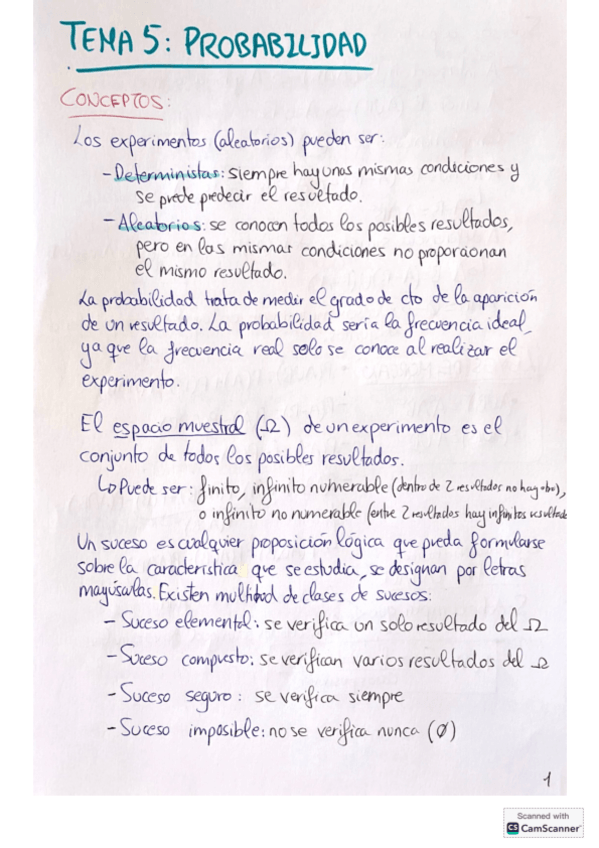 TEMA 5: PROBABILIDAD
CONCEPTOS:
Los experimentos (aleatorios) pueden ser:
- Deterministas: siempre hay unas mismas condiciones y
se puede predecir el resultado.
- Aleatorios: se conocen todos los posibles resultados,
pero en las mismas condiciones no proporcionan
el mismo resultado.
La probabilidad trata de medir el grado de cto de la aparición
de un resultado. La probabilidad sería la frecuencia ideal,
ya que la frecuencia real solo se conoce al realizar el
experimento.
El espacio muestral (Ω) de un experimento es el
conjunto de todos los posibles resultados.
↳ Puede ser: finito, infinito numerable (dentro de 2 resultados no hay otro),
o infinito no numerable (entre 2 resultados hay infinitos resultado
Un suceso es cualquier proposición lógica que pueda formularse
sobre la característica que se estudia, se designan por letras
mayúsculas. Existen multitud de clases de sucesos:
- Suceso elemental: se verifica un solo resultado del Ω
- Suceso compuesto: se verifican varios resultados del Ω
- Suceso seguro: se verifica siempre
- Suceso imposible: no se verifica nunca (∅)
1
Scanned with
CS CamScanner